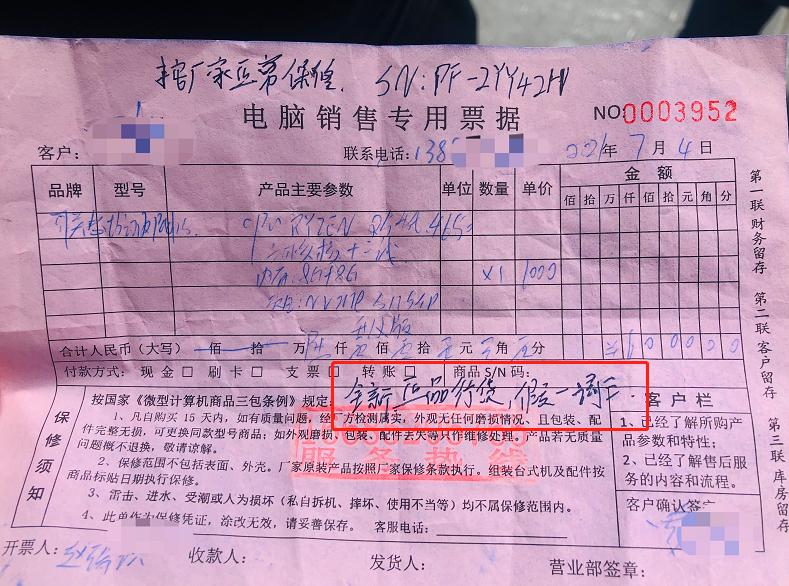 SN:PF-2YY42HV
电脑销售专用票据
NO:0003952
客户:
联系电话:138
2021年 7月 4日
品牌 型号 产品主要参数 单位 数量 单价 金额
佰 拾 万 仟 佰 拾 元 角 分
CPU RYZEN
六核心十二线
内存:8G+8G X1
¥600000
合计人民币(大写) 佰 拾 万 陆 仟 佰 拾 元 角 分
付款方式: 现金□ 刷卡□ 支票□ 转账□ 商品 S/N 码:
全新正品行货,假一
保修须知
按国家《微型计算机商品三包条例》规定:
1、凡自购买 15 天内,如有质量问题,经厂方检测属实,外观无任何磨损情况、且包装、配
件完整无损,可更换同款型号商品;如外观磨损、包装、配件丢失等只作维修处理。产品若无质量
问题概不退换,敬请谅解。
2、保修范围不包括表面、外壳。厂家原装产品按照厂家保修条款执行。组装台式机及配件按
商品标贴日期执行保修。
3、雷击、进水、受潮或人为损坏(私自拆机、摔坏、使用不当等)均不属保修范围内。
4、此单作为保修凭证,涂改无效,请妥善保存。 客服电话:
服务热线
客户栏
1、已经了解所购产
品参数和特性;
2、已经了解售后服
务的内容和流程。
客户确认签字
开票人: 收款人: 发货人: 营业部签章:
第一联 财务留存
第二联 客户留存
第三联 库房留存